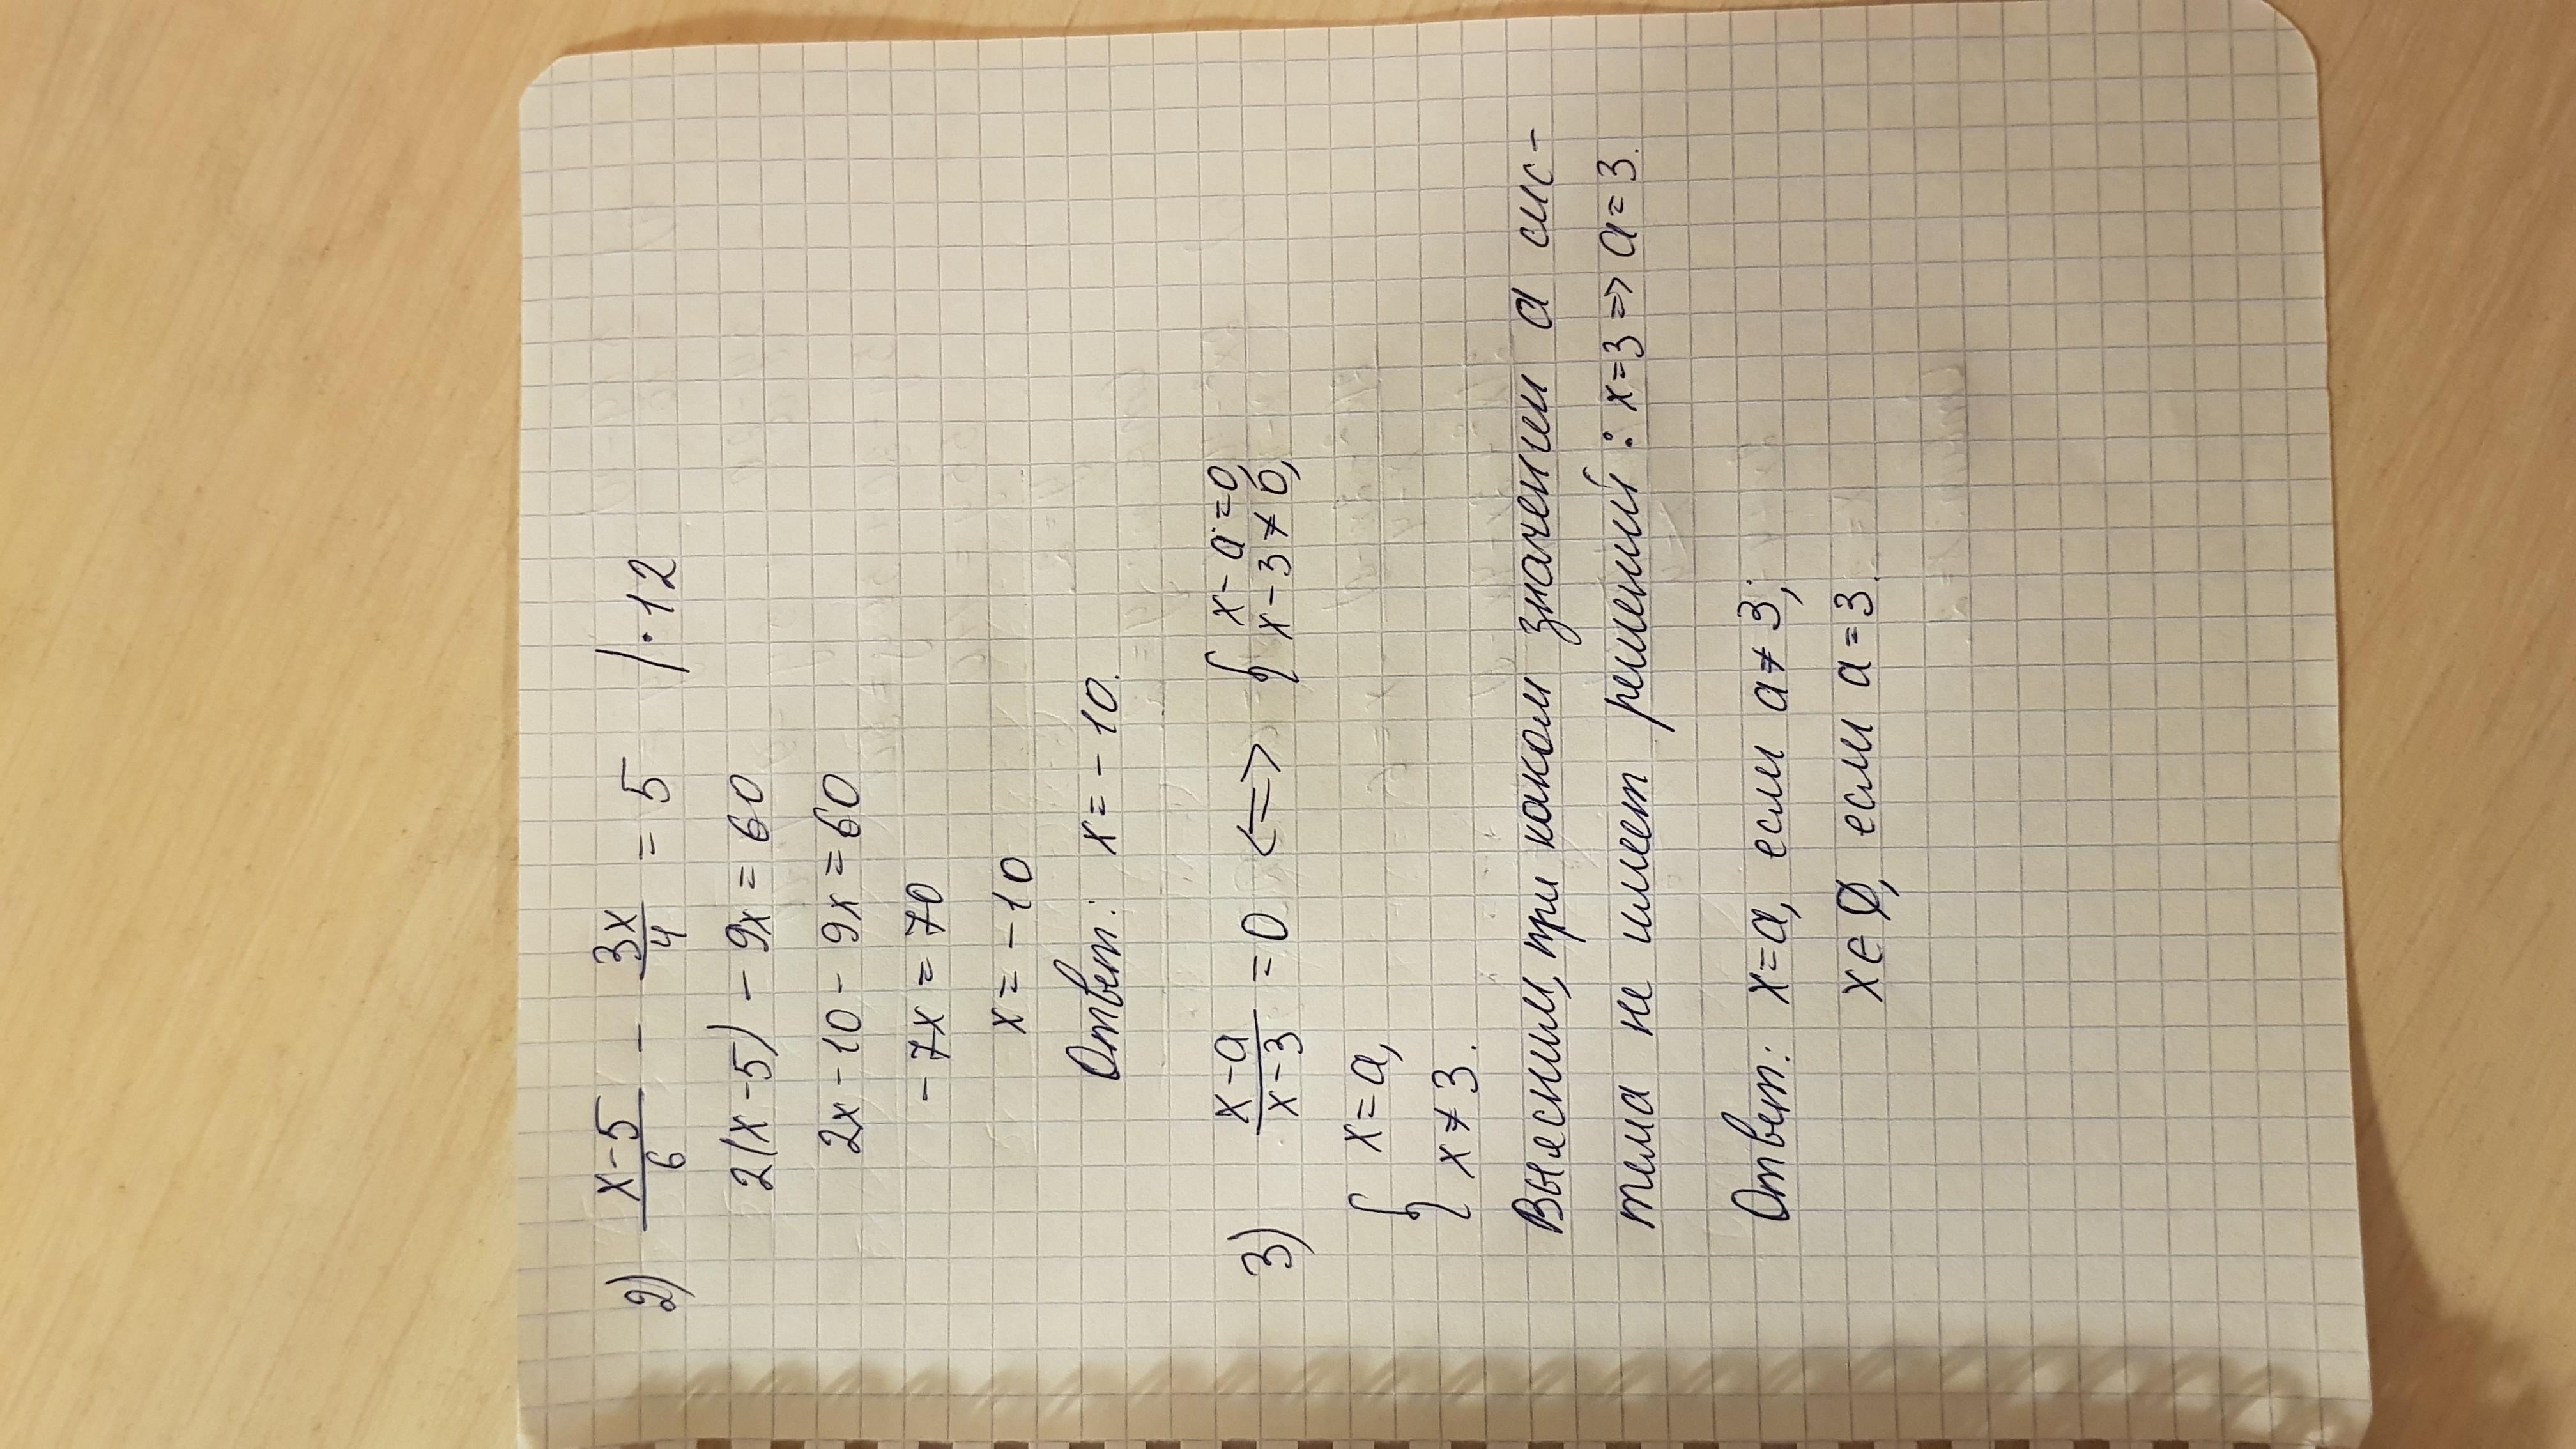 2) (x-5)/6 - 3x/4 = 5 |·12
2(x-5) - 9x = 60
2x - 10 - 9x = 60
-7x = 70
x = -10
Ответ: x = -10.
3) (x-a)/(x-3) = 0 <=> { x-a=0, x-3≠0,
{ x=a, x≠3.
Выясним, при каком значении a сис-
тема не имеет решений: x=3 => a=3.
Ответ: x=a, если a≠3;
x∈∅, если a=3.